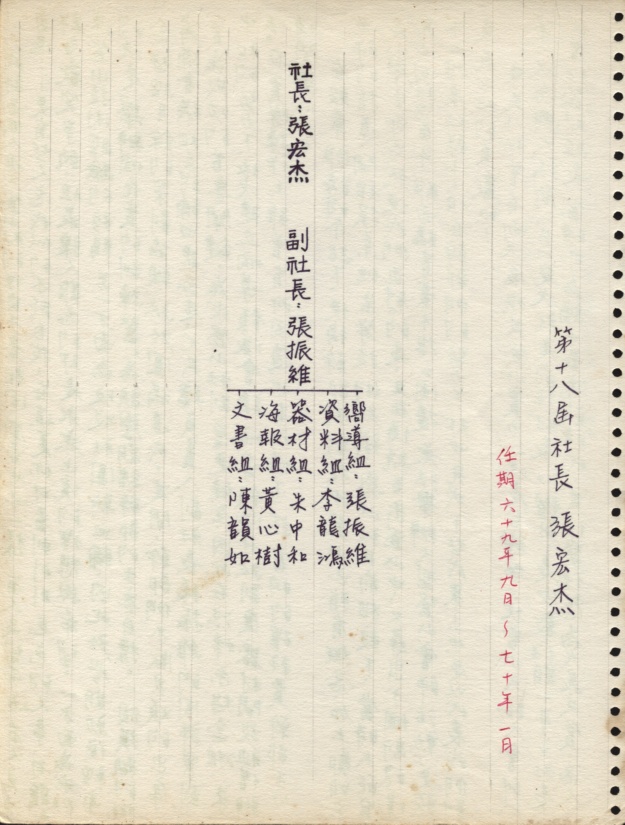 第十八屆社長 張宏杰
任期六十九年九月～七十年一月
社長：張宏杰 副社長：張振維
嚮導組：張振維
資料組：李龍鴻
器材組：朱中和
海報組：黃心樹
文書組：陳韻如